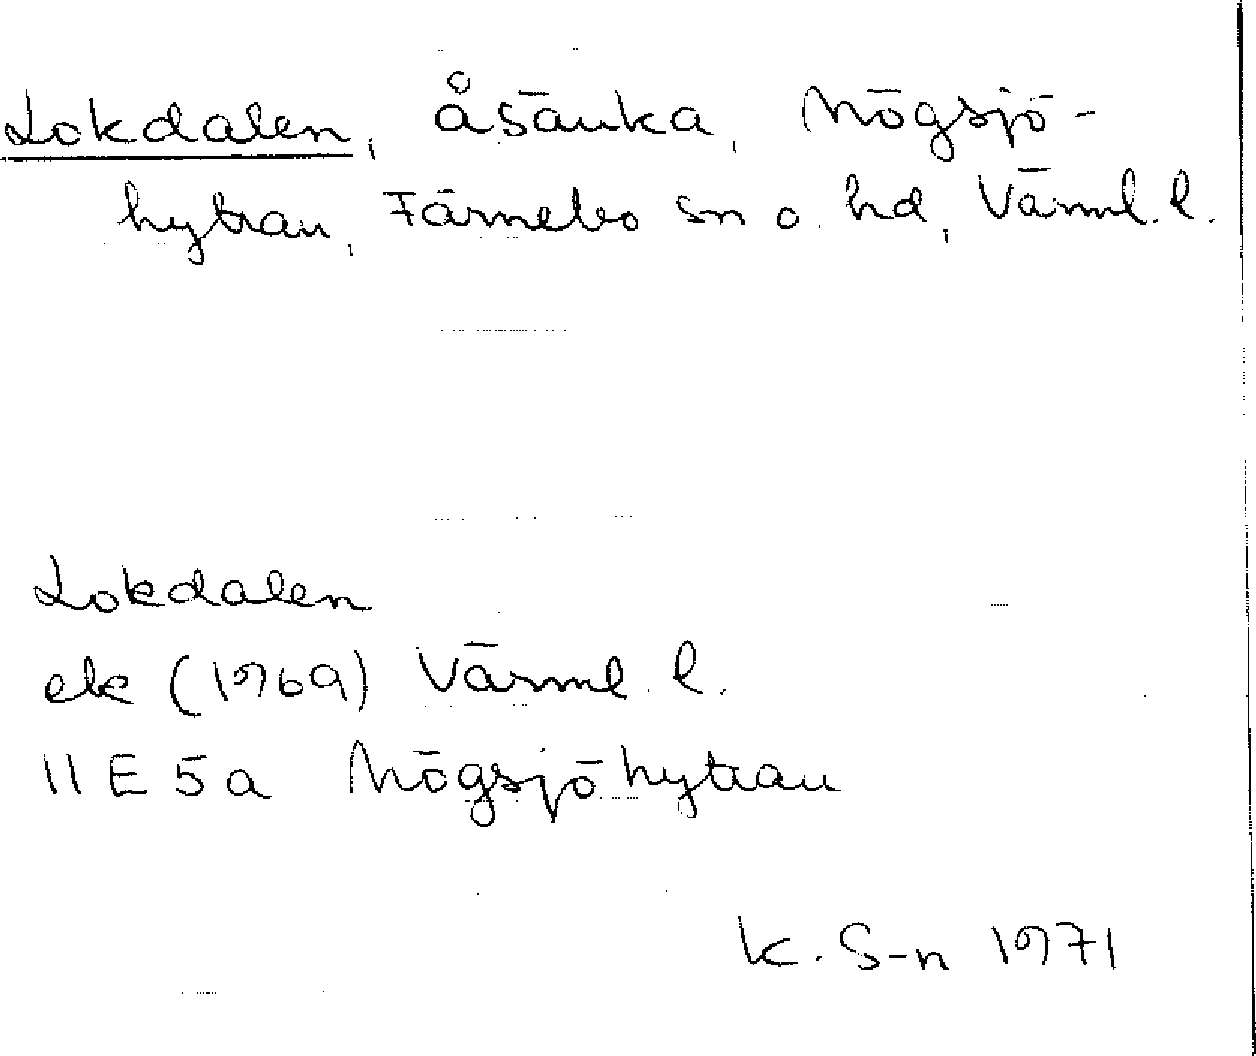 Lokdalen, åsänka, Högsjö-
hyttan, Färnebo sn o. hd, Värml. l.
Lokdalen
ek (1969) Värml. l.
11 E 5a Högsjöhyttan
K. S-n 1971